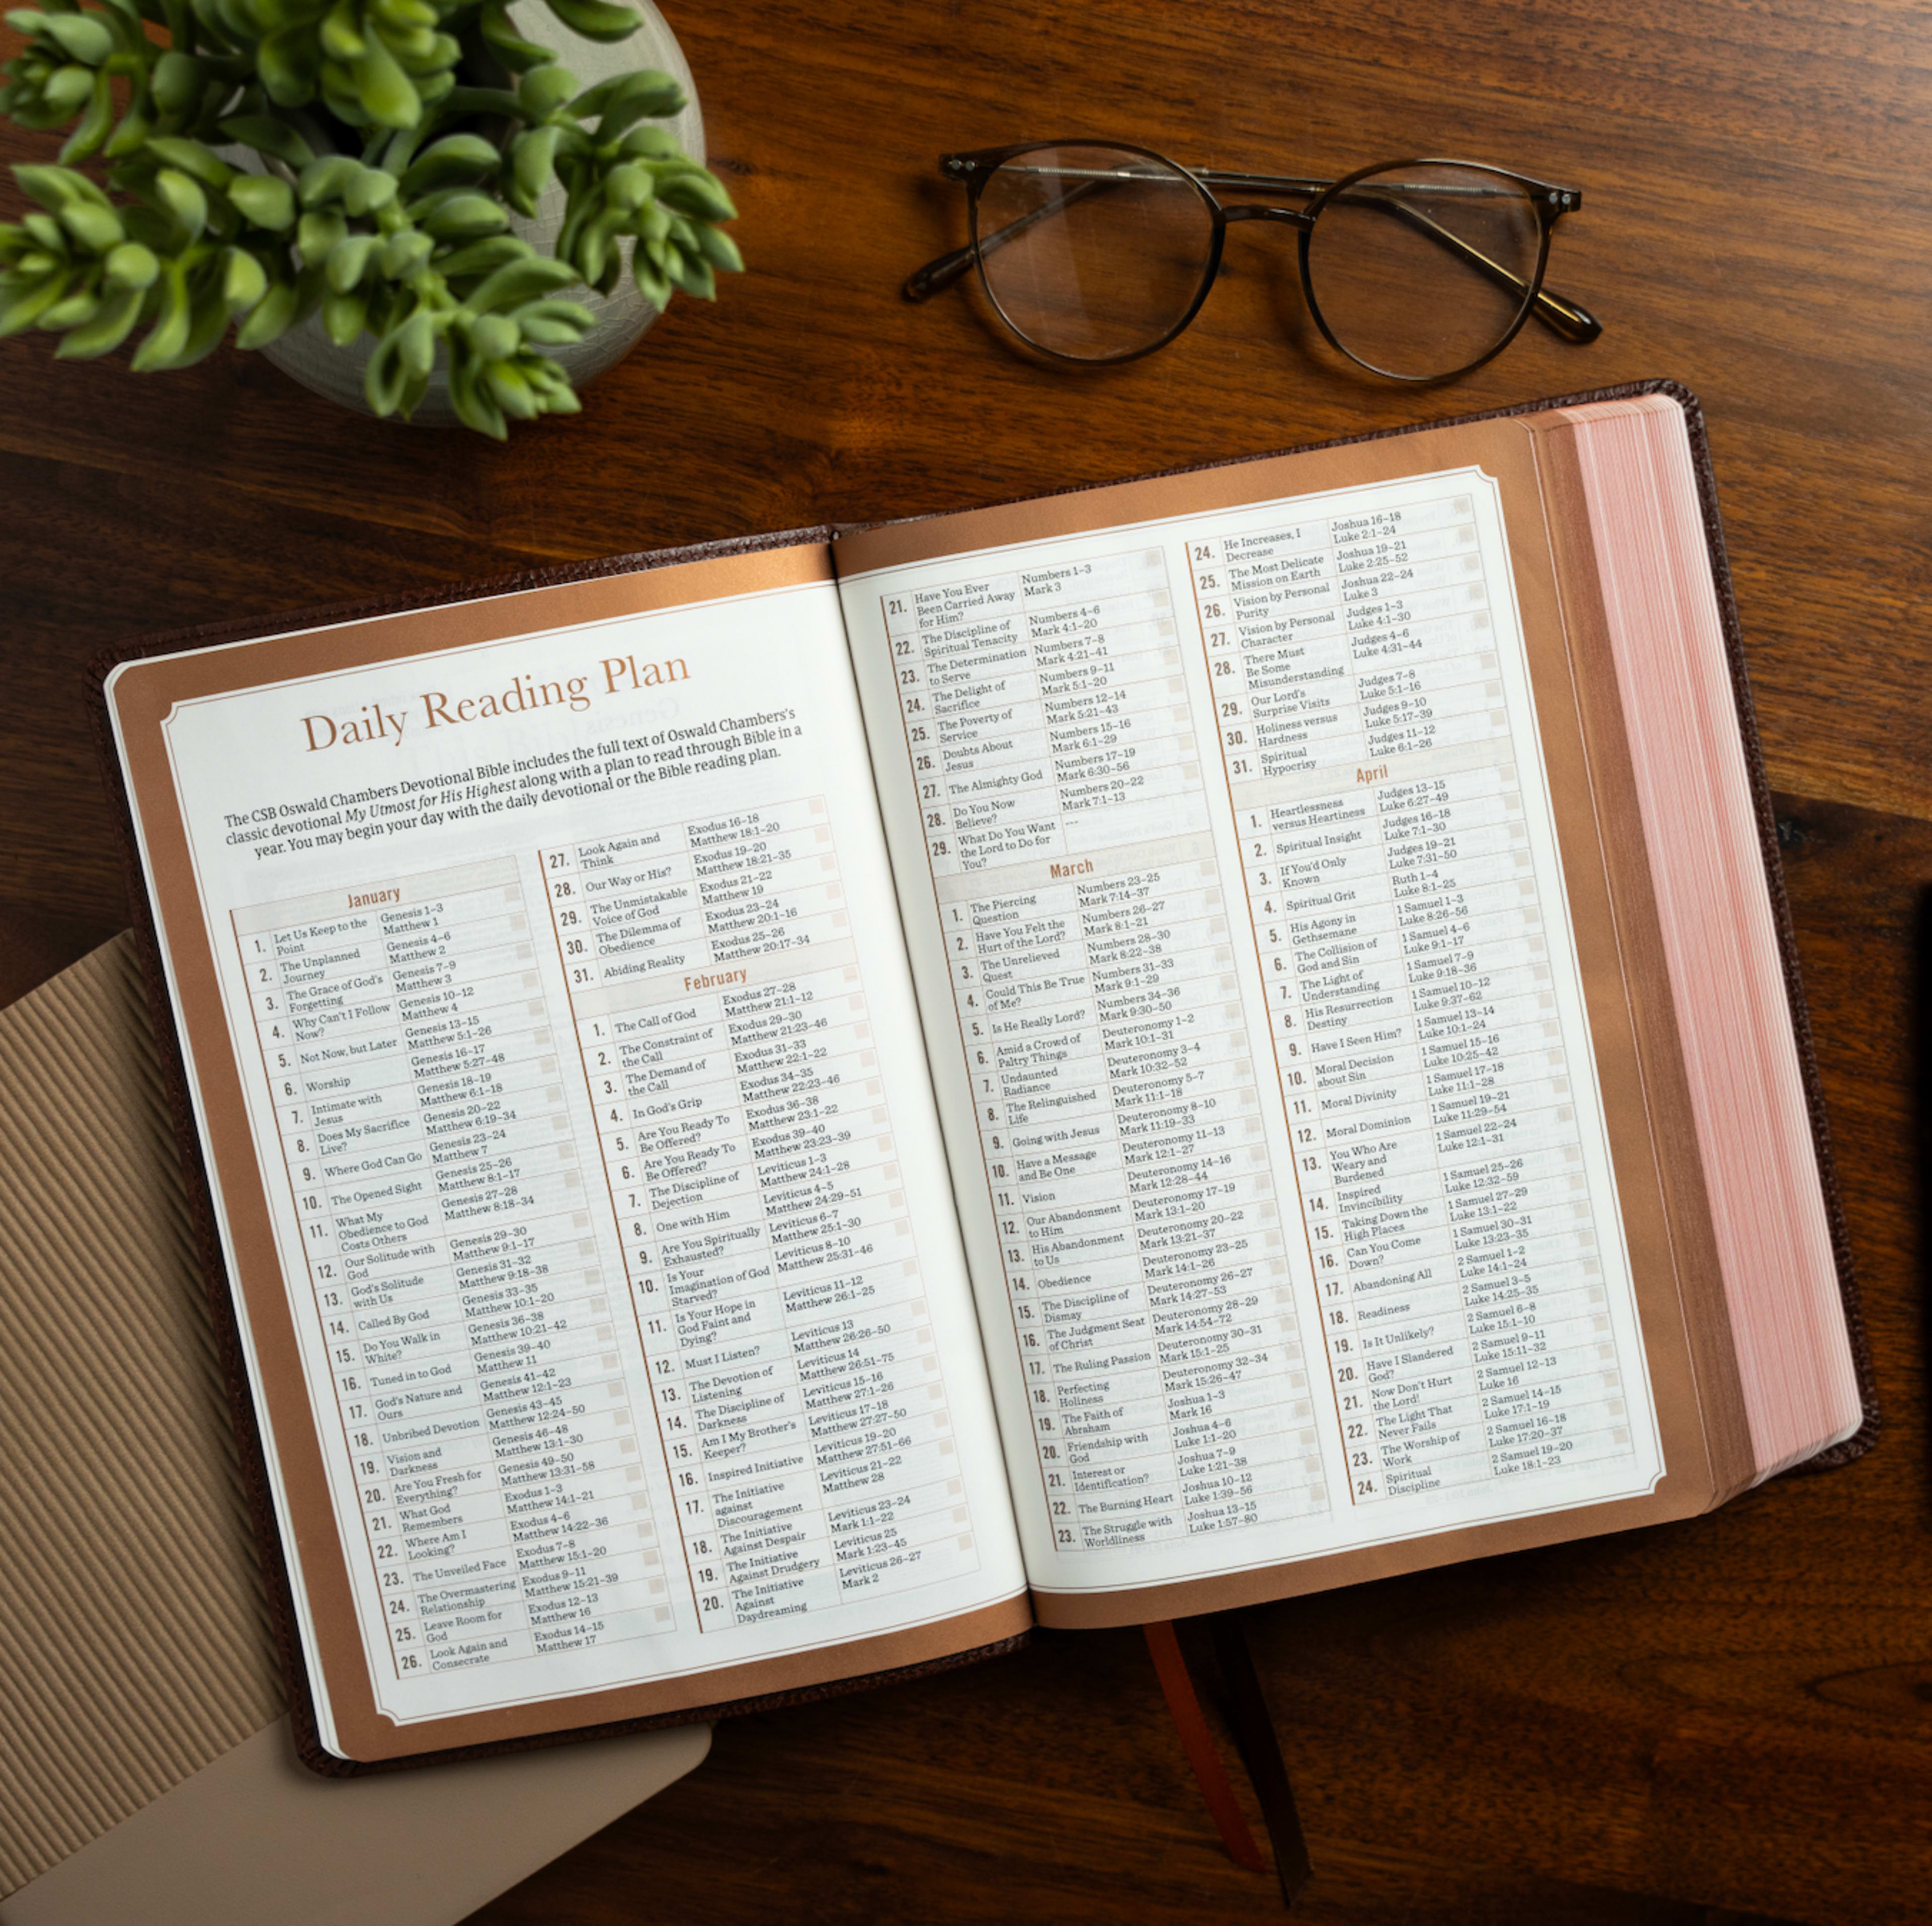 Daily Reading Plan
The CSB Oswald Chambers Devotional Bible includes the full text of Oswald Chambers's
classic devotional My Utmost for His Highest along with a plan to read through Bible in a
year. You may begin your day with the daily devotional or the Bible reading plan.
January
1. Let Us Keep to the Genesis 1–3
Point Matthew 1
2. The Unplanned Genesis 4–6
Journey Matthew 2
3. The Grace of God's Genesis 7–9
Forgetting Matthew 3
4. Why Can't I Follow Genesis 10–12
Now? Matthew 4
5. Not Now, but Later Genesis 13–15
Matthew 5:1–26
6. Worship Genesis 16–17
Matthew 5:27–48
7. Intimate with Genesis 18–19
Jesus Matthew 6:1–18
8. Does My Sacrifice Genesis 20–22
Live? Matthew 6:19–34
9. Where God Can Go Genesis 23–24
Matthew 7
10. The Opened Sight Genesis 25–26
Matthew 8:1–17
11. What My Genesis 27–28
Obedience to God Matthew 8:18–34
Costs Others
12. Our Solitude with Genesis 29–30
God Matthew 9:1–17
13. God's Solitude Genesis 31–32
with Us Matthew 9:18–38
14. Called By God Genesis 33–35
Matthew 10:1–20
15. Do You Walk in Genesis 36–38
White? Matthew 10:21–42
16. Tuned in to God Genesis 39–40
Matthew 11
17. God's Nature and Genesis 41–42
Ours Matthew 12:1–23
18. Unbribed Devotion Genesis 43–45
Matthew 12:24–50
19. Vision and Genesis 46–48
Darkness Matthew 13:1–30
20. Are You Fresh for Genesis 49–50
Everything? Matthew 13:31–58
21. What God Exodus 1–3
Remembers Matthew 14:1–21
22. Where Am I Exodus 4–6
Looking? Matthew 14:22–36
23. The Unveiled Face Exodus 7–8
Matthew 15:1–20
24. The Overmastering Exodus 9–11
Relationship Matthew 15:21–39
25. Leave Room for Exodus 12–13
God Matthew 16
26. Look Again and Exodus 14–15
Consecrate Matthew 17
27. Look Again and Exodus 16–18
Think Matthew 18:1–20
28. Our Way or His? Exodus 19–20
Matthew 18:21–35
29. The Unmistakable Exodus 21–22
Voice of God Matthew 19
30. The Dilemma of Exodus 23–24
Obedience Matthew 20:1–16
31. Abiding Reality Exodus 25–26
Matthew 20:17–34
February
1. The Call of God Exodus 27–28
Matthew 21:1–12
2. The Constraint of Exodus 29–30
the Call Matthew 21:23–46
3. The Demand of Exodus 31–33
the Call Matthew 22:1–22
4. In God's Grip Exodus 34–35
Matthew 22:23–46
5. Are You Ready To Exodus 36–38
Be Offered? Matthew 23:1–22
6. Are You Ready To Exodus 39–40
Be Offered? Matthew 23:23–39
7. The Discipline of Leviticus 1–3
Dejection Matthew 24:1–28
8. One with Him Leviticus 4–5
Matthew 24:29–51
9. Are You Spiritually Leviticus 6–7
Exhausted? Matthew 25:1–30
10. Is Your Leviticus 8–10
Imagination of God Matthew 25:31–46
Starved?
11. Is Your Hope in Leviticus 11–12
God Faint and Matthew 26:1–25
Dying?
12. Must I Listen? Leviticus 13
Matthew 26:26–50
13. The Devotion of Leviticus 14
Listening Matthew 26:51–75
14. The Discipline of Leviticus 15–16
Darkness Matthew 27:1–26
15. Am I My Brother's Leviticus 17–18
Keeper? Matthew 27:27–50
16. Inspired Initiative Leviticus 19–20
Matthew 27:51–66
17. The Initiative Leviticus 21–22
against Matthew 28
Discouragement
18. The Initiative Leviticus 23–24
Against Despair Mark 1:1–22
19. The Initiative Leviticus 25
Against Drudgery Mark 1:23–45
20. The Initiative Leviticus 26–27
Against Mark 2
Daydreaming
21. Have You Ever Numbers 1–3
Been Carried Away Mark 3
for Him?
22. The Discipline of Numbers 4–6
Spiritual Tenacity Mark 4:1–20
23. The Determination Numbers 7–8
to Serve Mark 4:21–41
24. The Delight of Numbers 9–11
Sacrifice Mark 5:1–20
25. The Poverty of Numbers 12–14
Service Mark 5:21–43
26. Doubts About Numbers 15–16
Jesus Mark 6:1–29
27. The Almighty God Numbers 17–19
Mark 6:30–56
28. Do You Now Numbers 20–22
Believe? Mark 7:1–13
29. What Do You Want ---
the Lord to Do for
You?
March
1. The Piercing Numbers 23–25
Question Mark 7:14–37
2. Have You Felt the Numbers 26–27
Hurt of the Lord? Mark 8:1–21
3. The Unrelieved Numbers 28–30
Quest Mark 8:22–38
4. Could This Be True Numbers 31–33
of Me? Mark 9:1–29
5. Is He Really Lord? Numbers 34–36
Mark 9:30–50
6. Amid a Crowd of Deuteronomy 1–2
Paltry Things Mark 10:1–31
7. Undaunted Deuteronomy 3–4
Radiance Mark 10:32–52
8. The Relinquished Deuteronomy 5–7
Life Mark 11:1–18
9. Going with Jesus Deuteronomy 8–10
Mark 11:19–33
10. Have a Message Deuteronomy 11–13
and Be One Mark 12:1–27
11. Vision Deuteronomy 14–16
Mark 12:28–44
12. Our Abandonment Deuteronomy 17–19
to Him Mark 13:1–20
13. His Abandonment Deuteronomy 20–22
to Us Mark 13:21–37
14. Obedience Deuteronomy 23–25
Mark 14:1–26
15. The Discipline of Deuteronomy 26–27
Dismay Mark 14:27–53
16. The Judgment Seat Deuteronomy 28–29
of Christ Mark 14:54–72
17. The Ruling Passion Deuteronomy 30–31
Mark 15:1–25
18. Perfecting Deuteronomy 32–34
Holiness Mark 15:26–47
19. The Faith of Joshua 1–3
Abraham Mark 16
20. Friendship with Joshua 4–6
God Luke 1:1–20
21. Interest or Joshua 7–9
Identification? Luke 1:21–38
22. The Burning Heart Joshua 10–12
Luke 1:39–56
23. The Struggle with Joshua 13–15
Worldliness Luke 1:57–80
24. He Increases, I Joshua 16–18
Decrease Luke 2:1–24
25. The Most Delicate Joshua 19–21
Mission on Earth Luke 2:25–52
26. Vision by Personal Joshua 22–24
Purity Luke 3
27. Vision by Personal Judges 1–3
Character Luke 4:1–30
28. There Must Judges 4–6
Be Some Luke 4:31–44
Misunderstanding
29. Our Lord's Judges 7–8
Surprise Visits Luke 5:1–16
30. Holiness versus Judges 9–10
Hardness Luke 5:17–39
31. Spiritual Judges 11–12
Hypocrisy Luke 6:1–26
April
1. Heartlessness Judges 13–15
versus Heartiness Luke 6:27–49
2. Spiritual Insight Judges 16–18
Luke 7:1–30
3. If You'd Only Judges 19–21
Known Luke 7:31–50
4. Spiritual Grit Ruth 1–4
Luke 8:1–25
5. His Agony in 1 Samuel 1–3
Gethsemane Luke 8:26–56
6. The Collision of 1 Samuel 4–6
God and Sin Luke 9:1–17
7. The Light of 1 Samuel 7–9
Understanding Luke 9:18–36
8. His Resurrection 1 Samuel 10–12
Destiny Luke 9:37–62
9. Have I Seen Him? 1 Samuel 13–14
Luke 10:1–24
10. Moral Decision 1 Samuel 15–16
about Sin Luke 10:25–42
11. Moral Divinity 1 Samuel 17–18
Luke 11:1–28
12. Moral Dominion 1 Samuel 19–21
Luke 11:29–54
13. You Who Are 1 Samuel 22–24
Weary and Luke 12:1–31
Burdened
14. Inspired 1 Samuel 25–26
Invincibility Luke 12:32–59
15. Taking Down the 1 Samuel 27–29
High Places Luke 13:1–22
16. Can You Come 1 Samuel 30–31
Down? Luke 13:23–35
17. Abandoning All 2 Samuel 1–2
Luke 14:1–24
18. Readiness 2 Samuel 3–5
Luke 14:25–35
19. Is It Unlikely? 2 Samuel 6–8
Luke 15:1–10
20. Have I Slandered 2 Samuel 9–11
God? Luke 15:11–32
21. Now Don't Hurt 2 Samuel 12–13
the Lord! Luke 16
22. The Light That 2 Samuel 14–15
Never Fails Luke 17:1–19
23. The Worship of 2 Samuel 16–18
Work Luke 17:20–37
24. Spiritual 2 Samuel 19–20
Discipline Luke 18:1–23